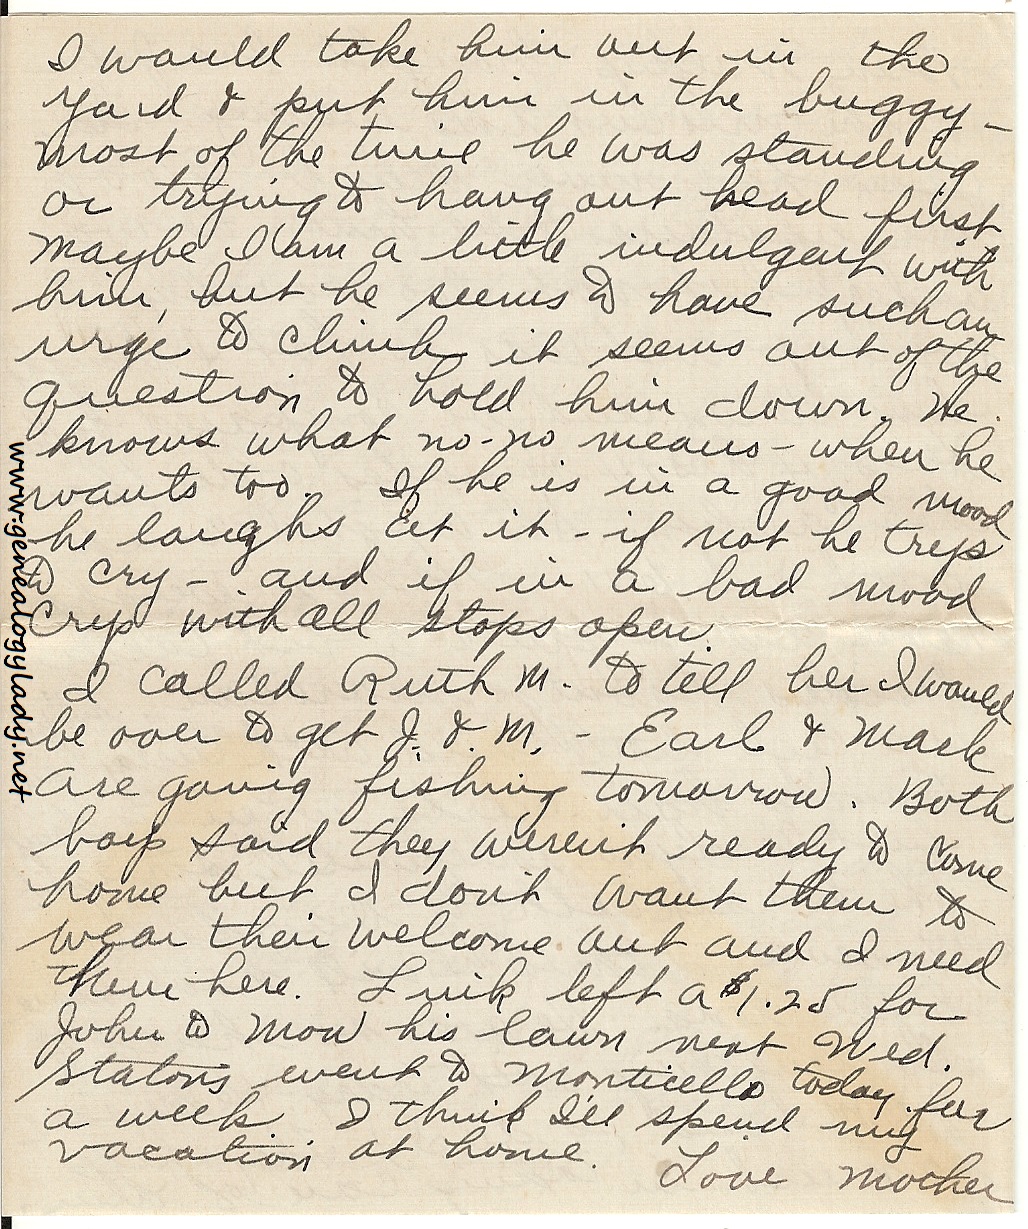 I would take him out in the
yard & put him in the buggy –
most of the time he was standing
or trying to hang out head first
Maybe I am a little indulgent with
him, but he seems to have such an
urge to climb it seems out of the
question to hold him down. He
knows what no-no means – when he
wants too. If he is in a good mood
he laughs at it – if not he trys
to cry – and if in a bad mood
crys with all stops open.
I called Ruth M. to tell her I would
be over to get J. & M. – Earl & Mark
are going fishing tomorrow. Both
boys said they weren't ready to come
home but I don't want them to
wear their welcome out and I need
them here. Link left a $1.25 for
John to mow his lawn next Wed.
Statons went to Monticello today for
a week I think I'll spend my
vacation at home.
Love Mother
www.genealogylady.net